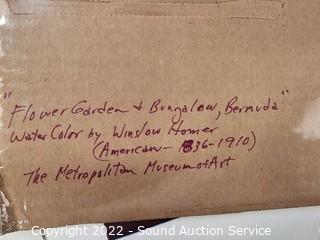 "Flower Garden & Bungalow, Bermuda"
Water Color by Winslow Homer
(American - 1836-1910)
The Metropolitan Museum of Art
Copyright 2022 - Sound Auction Service